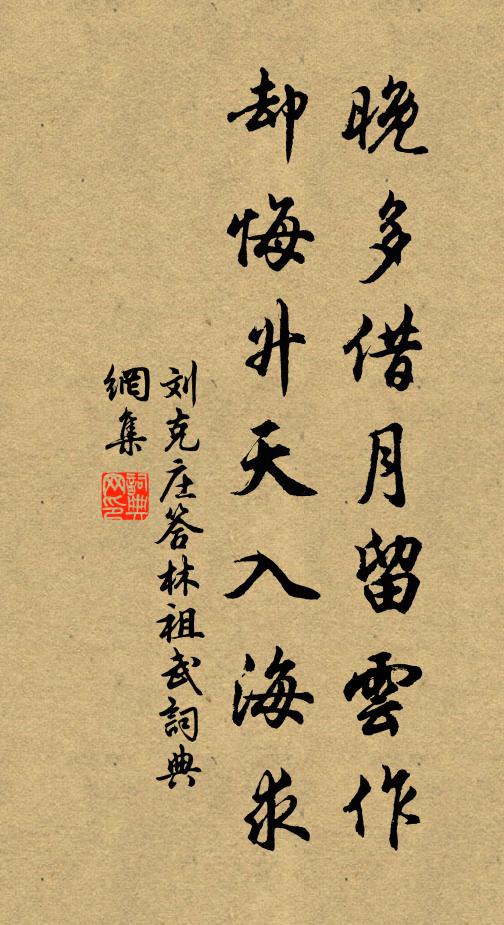 晚多借月留雲作
却悔升天入海求
刘克庄答林祖武詞典
網集
詞典網印